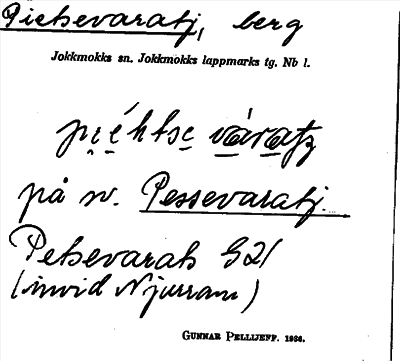 Pietsevaratj, berg
Jokkmokks sn. Jokkmokks lappmarks tg. Nb l.
pi̯ẹ́htse̱ vá̱ra̱tj
på sv. Pessevaratj.
Petsevarats G21
(invid Njurram)
GUNNAR PELLIJEFF. 1936.